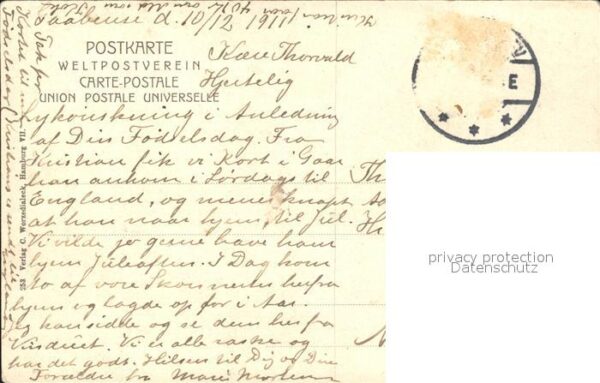 Faaborg d. 10/12 1911
POSTKARTE
WELTPOSTVEREIN
CARTE-POSTALE
UNION POSTALE UNIVERSELLE
Kære Thorvald
Hjertelig
Lykønskning i Anledning
af Din Fødselsdag. Fra
Kristian fik vi Kort i Gaar
han ankom i Lørdags til
England, og mener knapt
at han naar hjem til Jul.
Vi vilde jo gerne have ham
hjem Juleaften. I Dag kom
to af vore Skonnerter herfra
hjem og lagde op for i Aar.
Jeg kan sidde og se dem her fra
Vinduet. Vi er alle raske og
har det godt. Hilsen til Dig og Dine
Forældre fra Marie
Tak for
Kortet til min
Fødselsdag
253 Verlag C. Worzedialeck, Hamburg VII.
E
privacy protection
Datenschutz